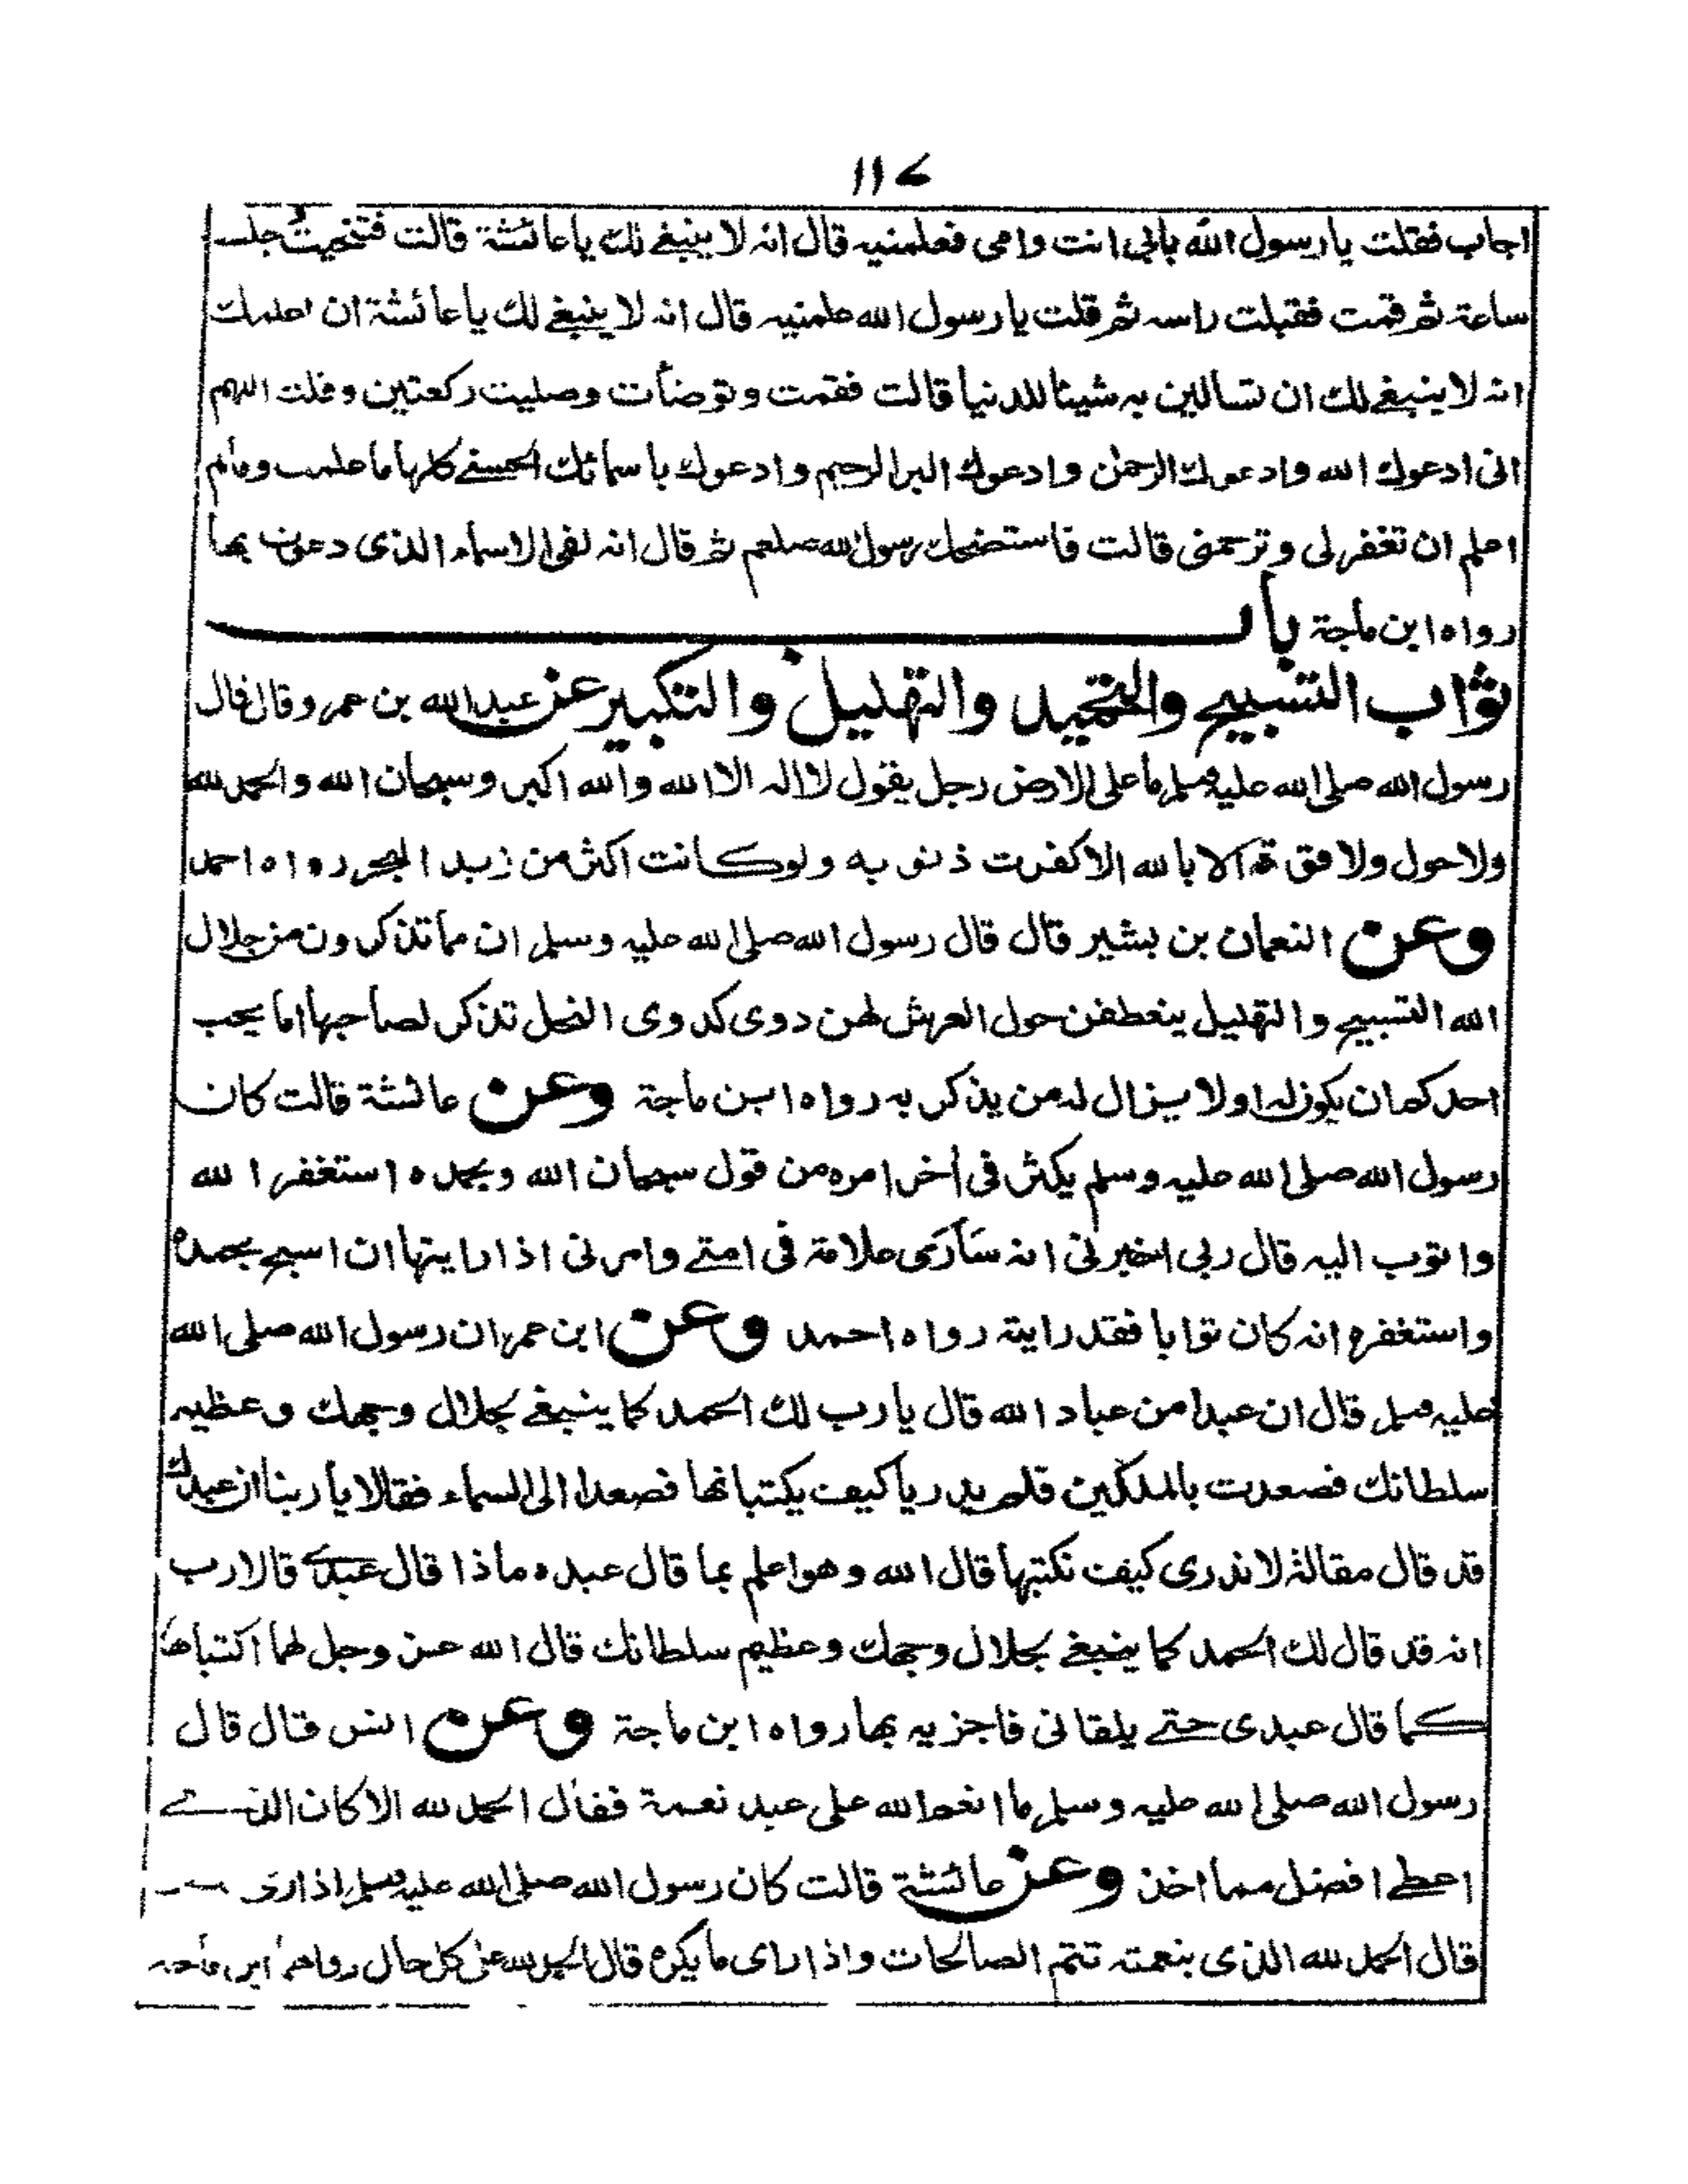 ۱۱۷
اجاب فقلت يا رسول الله بابي انت وامي فعلمنيه قال انه لا ينبغي لك يا عائشة قالت فتنحيت وجلست
ساعة ثم قمت فقبلت راسه ثم قلت يا رسول الله علمنيه قال انه لا ينبغي لك يا عائشة ان اعلمك
انه لا ينبغي لك ان تسالين به شيئا للدنيا قالت فقمت وتوضأت وصليت ركعتين وقلت اللهم
اني ادعوك الله وادعوك الرحمن وادعوك البر الرحيم وادعوك باسمائك الحسنے كلها ما علمت ومالم
اعلم ان تغفر لي وترحمني قالت فاستضحك رسول الله صلعم ثم قال انه لفي الاسماء الذي دعوت بها
رواه ابن ماجة باب
ثواب التسبيح والتحميد والتهليل والتكبير عن عبد الله بن عمرو قال قال
رسول الله صلى الله عليه وسلم ما على الارض رجل يقول لا اله الا الله والله اكبر وسبحان الله والحمد لله
ولا حول ولا قوة الا بالله الا كفرت ذنوبه ولو كانت اكثر من زبد البحر رواه احمد
وعن النعمان بن بشير قال قال رسول الله صلى الله عليه وسلم ان مما تذكرون من جلال
الله التسبيح والتهليل ينعطفن حول العرش لهن دوي كدوي النحل تذكر لصاحبها اما يحب
احدكم ان يكون له او لا يزال له من يذكر به رواه ابن ماجة وعن عائشة قالت كان
رسول الله صلى الله عليه وسلم يكثر في أخر امره من قول سبحان الله وبحمده استغفر الله
واتوب اليه قال ربي اخبرني انه سأرى علامة في امتے وامرني اذا رايتها ان اسبح بحمده
واستغفره انه كان توابا فقد رايته رواه احمد وعن ابن عمر ان رسول الله صلى الله
عليه وسلم قال ان عبدا من عباد الله قال يا رب لك الحمد كما ينبغي بجلال وجهك وعظيم
سلطانك فصعدت بالملكين فلم يدريا كيف يكتبانها فصعدا الى السماء فقالا يا ربنا ان عبدك
قد قال مقالة لا ندري كيف نكتبها قال الله وهو اعلم بما قال عبده ماذا قال عبدي قالا رب
انه قد قال لك الحمد كما ينبغي بجلال وجهك وعظيم سلطانك قال الله عز وجل لهما اكتباها
كما قال عبدي حتے يلقاني فاجزيه بها رواه ابن ماجة وعن انس قال قال
رسول الله صلى الله عليه وسلم ما انعم الله على عبد نعمة فقال الحمد لله الا كان الذے
اعطے افضل مما اخذ وعن عائشة قالت كان رسول الله صلى الله عليه وسلم اذا رأى
قال الحمد لله الذي بنعمته تتم الصالحات واذا راى ما يكره قال الحمد لله على كل حال رواهما ابن ماجة